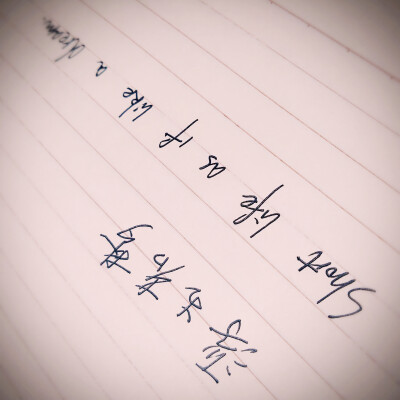 Short life as if like a dream.
浮生若梦